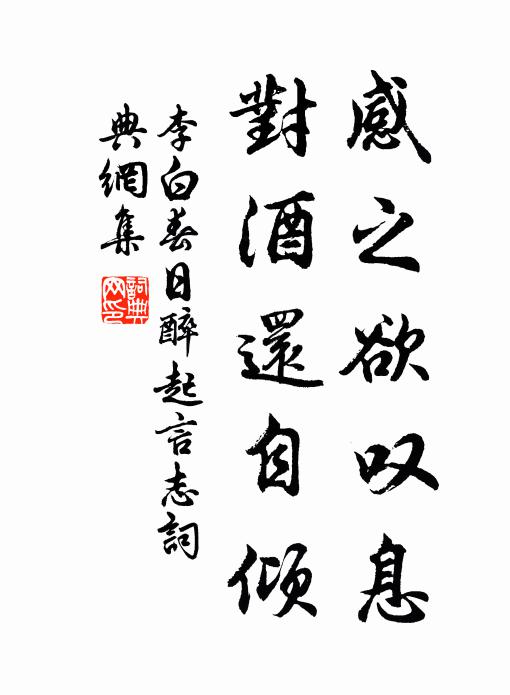 感之欲叹息
對酒還自傾
李白春日醉起言志詞
典網集
詞典
网印